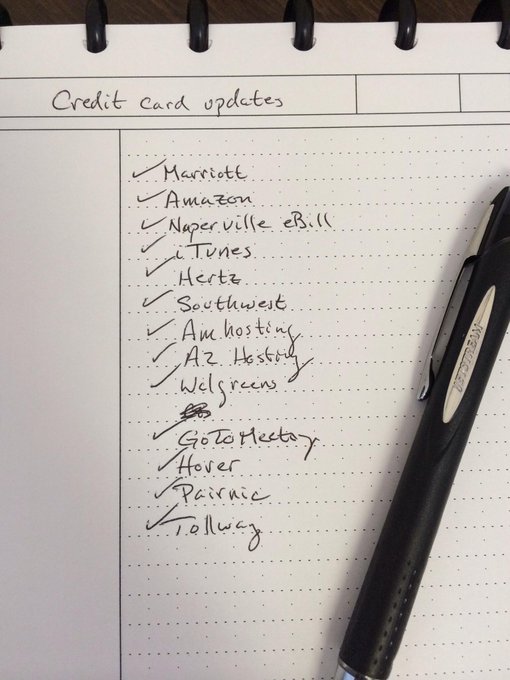 Credit card updates
✓ Marriott
✓ Amazon
✓ Naperville eBill
✓ iTunes
✓ Hertz
✓ Southwest
✓ Amhosting
✓ A2 Hosting
✓ Walgreens
✓ GoToMeeting
✓ Hover
✓ Pairnic
✓ Tollway
JETSTREAM